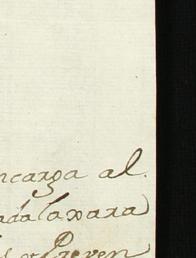 ncarga al.
ada laxara
Preven